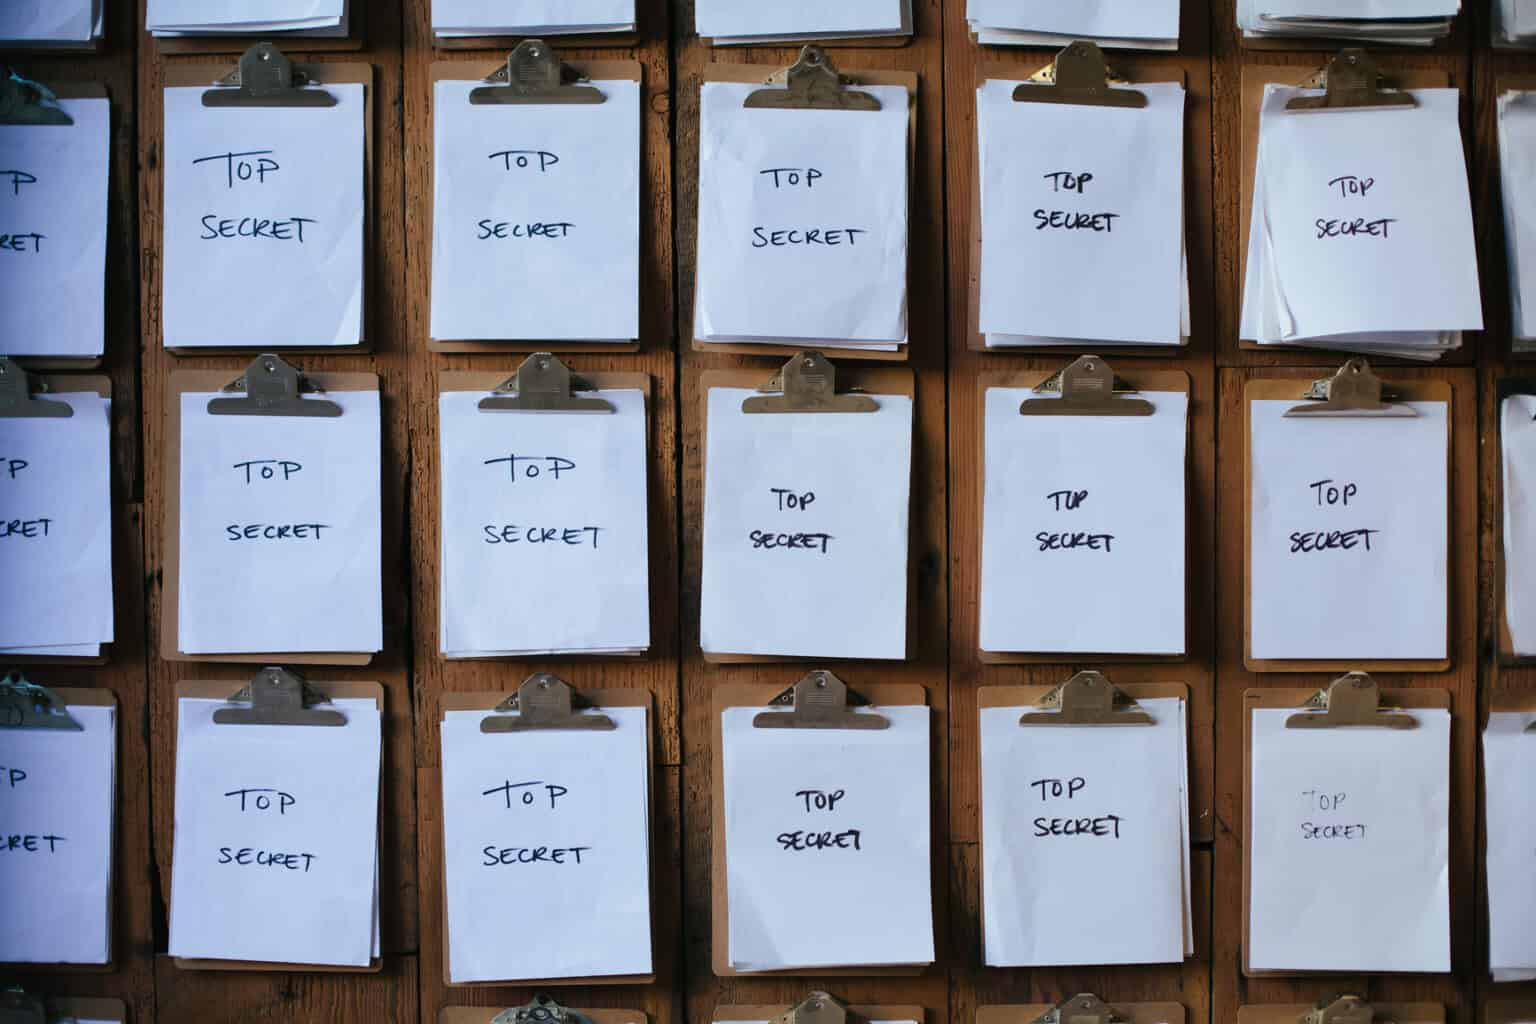 TOP
SECRET
TOP
SECRET
TOP
SECRET
TOP
SECRET
TOP
SECRET
TOP
SECRET
TOP
SECRET
TOP
SECRET
TOP
SECRET
TOP
SECRET
TOP
SECRET
TOP
SECRET
TOP
SECRET
TOP
SECRET
TOP
SECRET